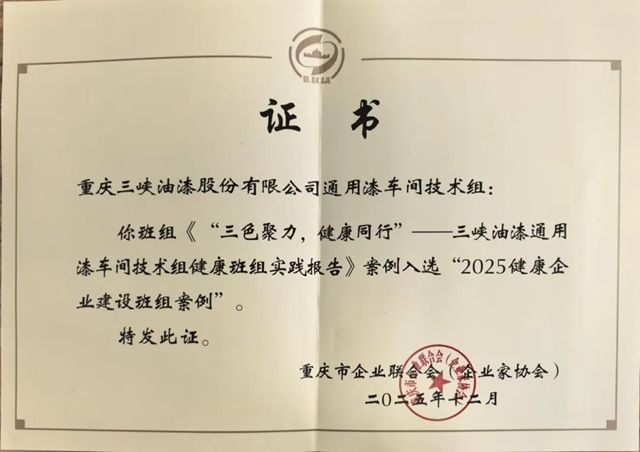 证 书
重庆三峡油漆股份有限公司通用漆车间技术组：
你班组《“三色聚力，健康同行”——三峡油漆通用
漆车间技术组健康班组实践报告》案例入选“2025健康企
业建设班组案例”。
特发此证。
重庆市企业联合会（企业家协会）
二〇二五年十二月